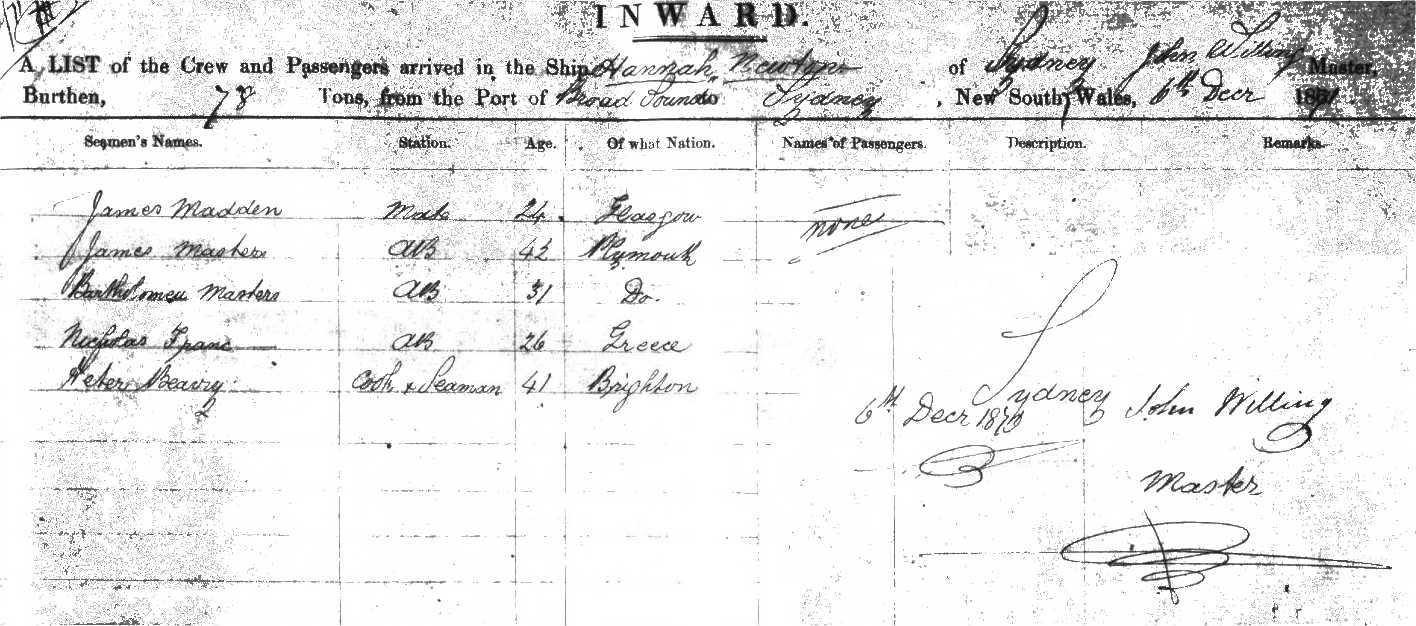 INWARD.
A LIST of the Crew and Passengers arrived in the Ship Hannah Newton of Sydney John Willing Master,
Burthen, 78 Tons, from the Port of Broad Sound to Sydney, New South Wales, 6th Decr
Seamen's Names. Station. Age. Of what Nation. Names of Passengers. Description. Remarks.
James Madden Mate 24 Glasgow none
James Masters AB 42 Plymouth
Bartholomew Masters AB 31 Do.
Nicholas AB 26 Greece
Peter Cook & Seaman 41 Brighton
Sydney
6th Decr John Willing
Master